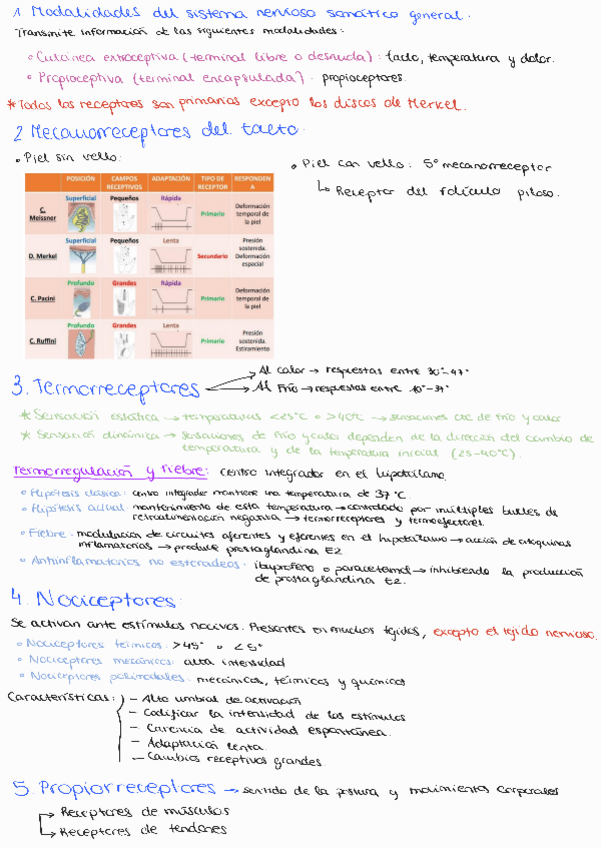 1 Modalidades del sistema nervioso somático general.
Transmite información de las siguientes modalidades:
◦ Cutánea extroceptiva (terminal libre o desnuda): tacto, temperatura y dolor.
◦ Propioceptiva (terminal encapsulada). propioceptores.
* Todos los receptores son primarios excepto los discos de Merkel.
2 Mecanorreceptores del tacto.
• Piel sin vello:
• Piel con vello: 5º mecanorreceptor
↳ Receptor del folículo piloso.
POSICIÓN CAMPOS RECEPTIVOS ADAPTACIÓN TIPO DE RECEPTOR RESPONDEN A
C. Meissner Superficial Pequeños Rápida Primario Deformación temporal de la piel
D. Merkel Superficial Pequeños Lenta Secundario Presión sostenida. Deformación espacial
C. Pacini Profundo Grandes Rápida Primario Deformación temporal de la piel
C. Ruffini Profundo Grandes Lenta Primario Presión sostenida. Estiramiento
3. Termorreceptores
Al calor → respuestas entre 30°-47°
Al frío → respuestas entre 10°-37°
* Sensación estática → temperaturas <25°C o >40°C → sensaciones de frío y calor
* Sensación dinámica → sensaciones de frío y calor dependen de la dirección del cambio de
temperatura y de la temperatura inicial (25-40°C).
Termorregulación y fiebre: centro integrador en el hipotálamo.
◦ Hipótesis clásica: centro integrador mantiene una temperatura de 37°C.
◦ Hipótesis actual: mantenimiento de esta temperatura → controlado por múltiples bucles de
retroalimentación negativa → termorreceptores y termoefectores.
◦ Fiebre: modulación de circuitos aferentes y eferentes en el hipotálamo → acción de citoquinas
inflamatorias → produce prostaglandina E2
◦ Antiinflamatorios no esteroideos: ibuprofeno o paracetamol → inhibiendo la producción
de prostaglandina E2.
4. Nociceptores.
Se activan ante estímulos nocivos. Presentes en muchos tejidos, excepto el tejido nervioso.
◦ Nociceptores térmicos: >45° o <5°
◦ Nociceptores mecánicos: alta intensidad
◦ Nociceptores polimodales: mecánicos, térmicos y químicos
Características: – Alto umbral de activación
– Codificar la intensidad de los estímulos
– Carencia de actividad espontánea.
– Adaptación lenta.
– Cambios receptivos grandes
5. Propiorreceptores → sentido de la postura y movimientos corporales
↳ Receptores de músculos
↳ Receptores de tendones